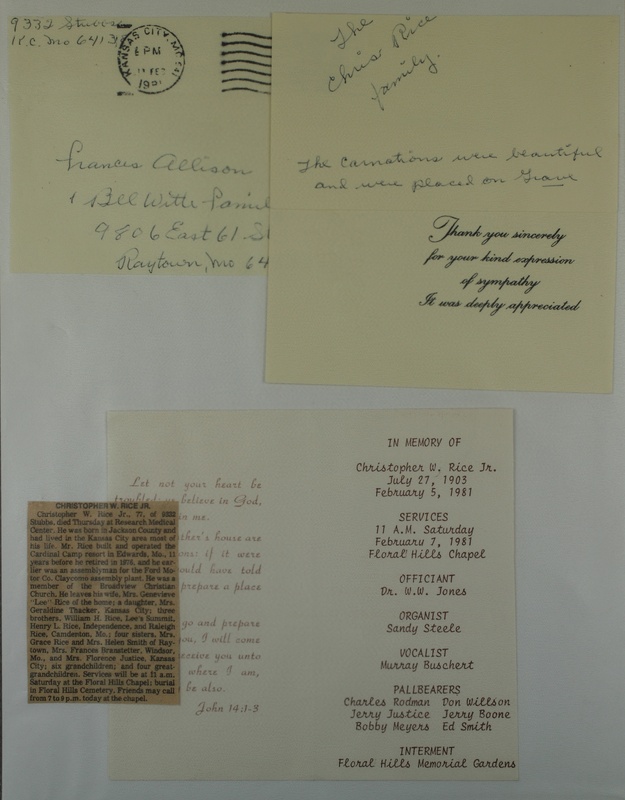 9332 Stubbs
K.C. Mo 6413
KANSAS CITY, MO
6 PM
11 FEB
Frances Allison
+ Bill Witte Famil
9806 East 61 St
Raytown, Mo 64
The
Chris Rice
family.
The carnations were beautiful
and were placed on Grave
Thank you sincerely
for your kind expression
of sympathy
It was deeply appreciated
Let not your heart be
believe in God,
in me.
house are
if it were
would have told
prepare a place
go and prepare
you, I will come
receive you unto
where I am,
be also.
John 14:1-3
CHRISTOPHER W. RICE JR.
Christopher W. Rice Jr., 77, of 9332
Stubbs, died Thursday at Research Medical
Center. He was born in Jackson County and
had lived in the Kansas City area most of
his life. Mr. Rice built and operated the
Cardinal Camp resort in Edwards, Mo., 11
years before he retired in 1976, and he ear-
lier was an assemblyman for the Ford Mo-
tor Co. Claycomo assembly plant. He was a
member of the Broadview Christian
Church. He leaves his wife, Mrs. Genevieve
"Lee" Rice of the home; a daughter, Mrs.
Geraldine Thacker, Kansas City; three
brothers, William H. Rice, Lee's Summit,
Henry L. Rice, Independence, and Raleigh
Rice, Camdenton, Mo.; four sisters, Mrs.
Grace Rice and Mrs. Helen Smith of Ray-
town, Mrs. Frances Branstetter, Windsor,
Mo., and Mrs. Florence Justice, Kansas
City; six grandchildren; and four great-
grandchildren. Services will be at 11 a.m.
Saturday at the Floral Hills Chapel; burial
in Floral Hills Cemetery. Friends may call
from 7 to 9 p.m. today at the chapel.
IN MEMORY OF
Christopher W. Rice Jr.
July 27, 1903
February 5, 1981
SERVICES
11 A.M. Saturday
February 7, 1981
Floral Hills Chapel
OFFICIANT
Dr. W.W. Jones
ORGANIST
Sandy Steele
VOCALIST
Murray Buschert
PALLBEARERS
Charles Rodman Don Willson
Jerry Justice Jerry Boone
Bobby Meyers Ed Smith
INTERMENT
Floral Hills Memorial Gardens